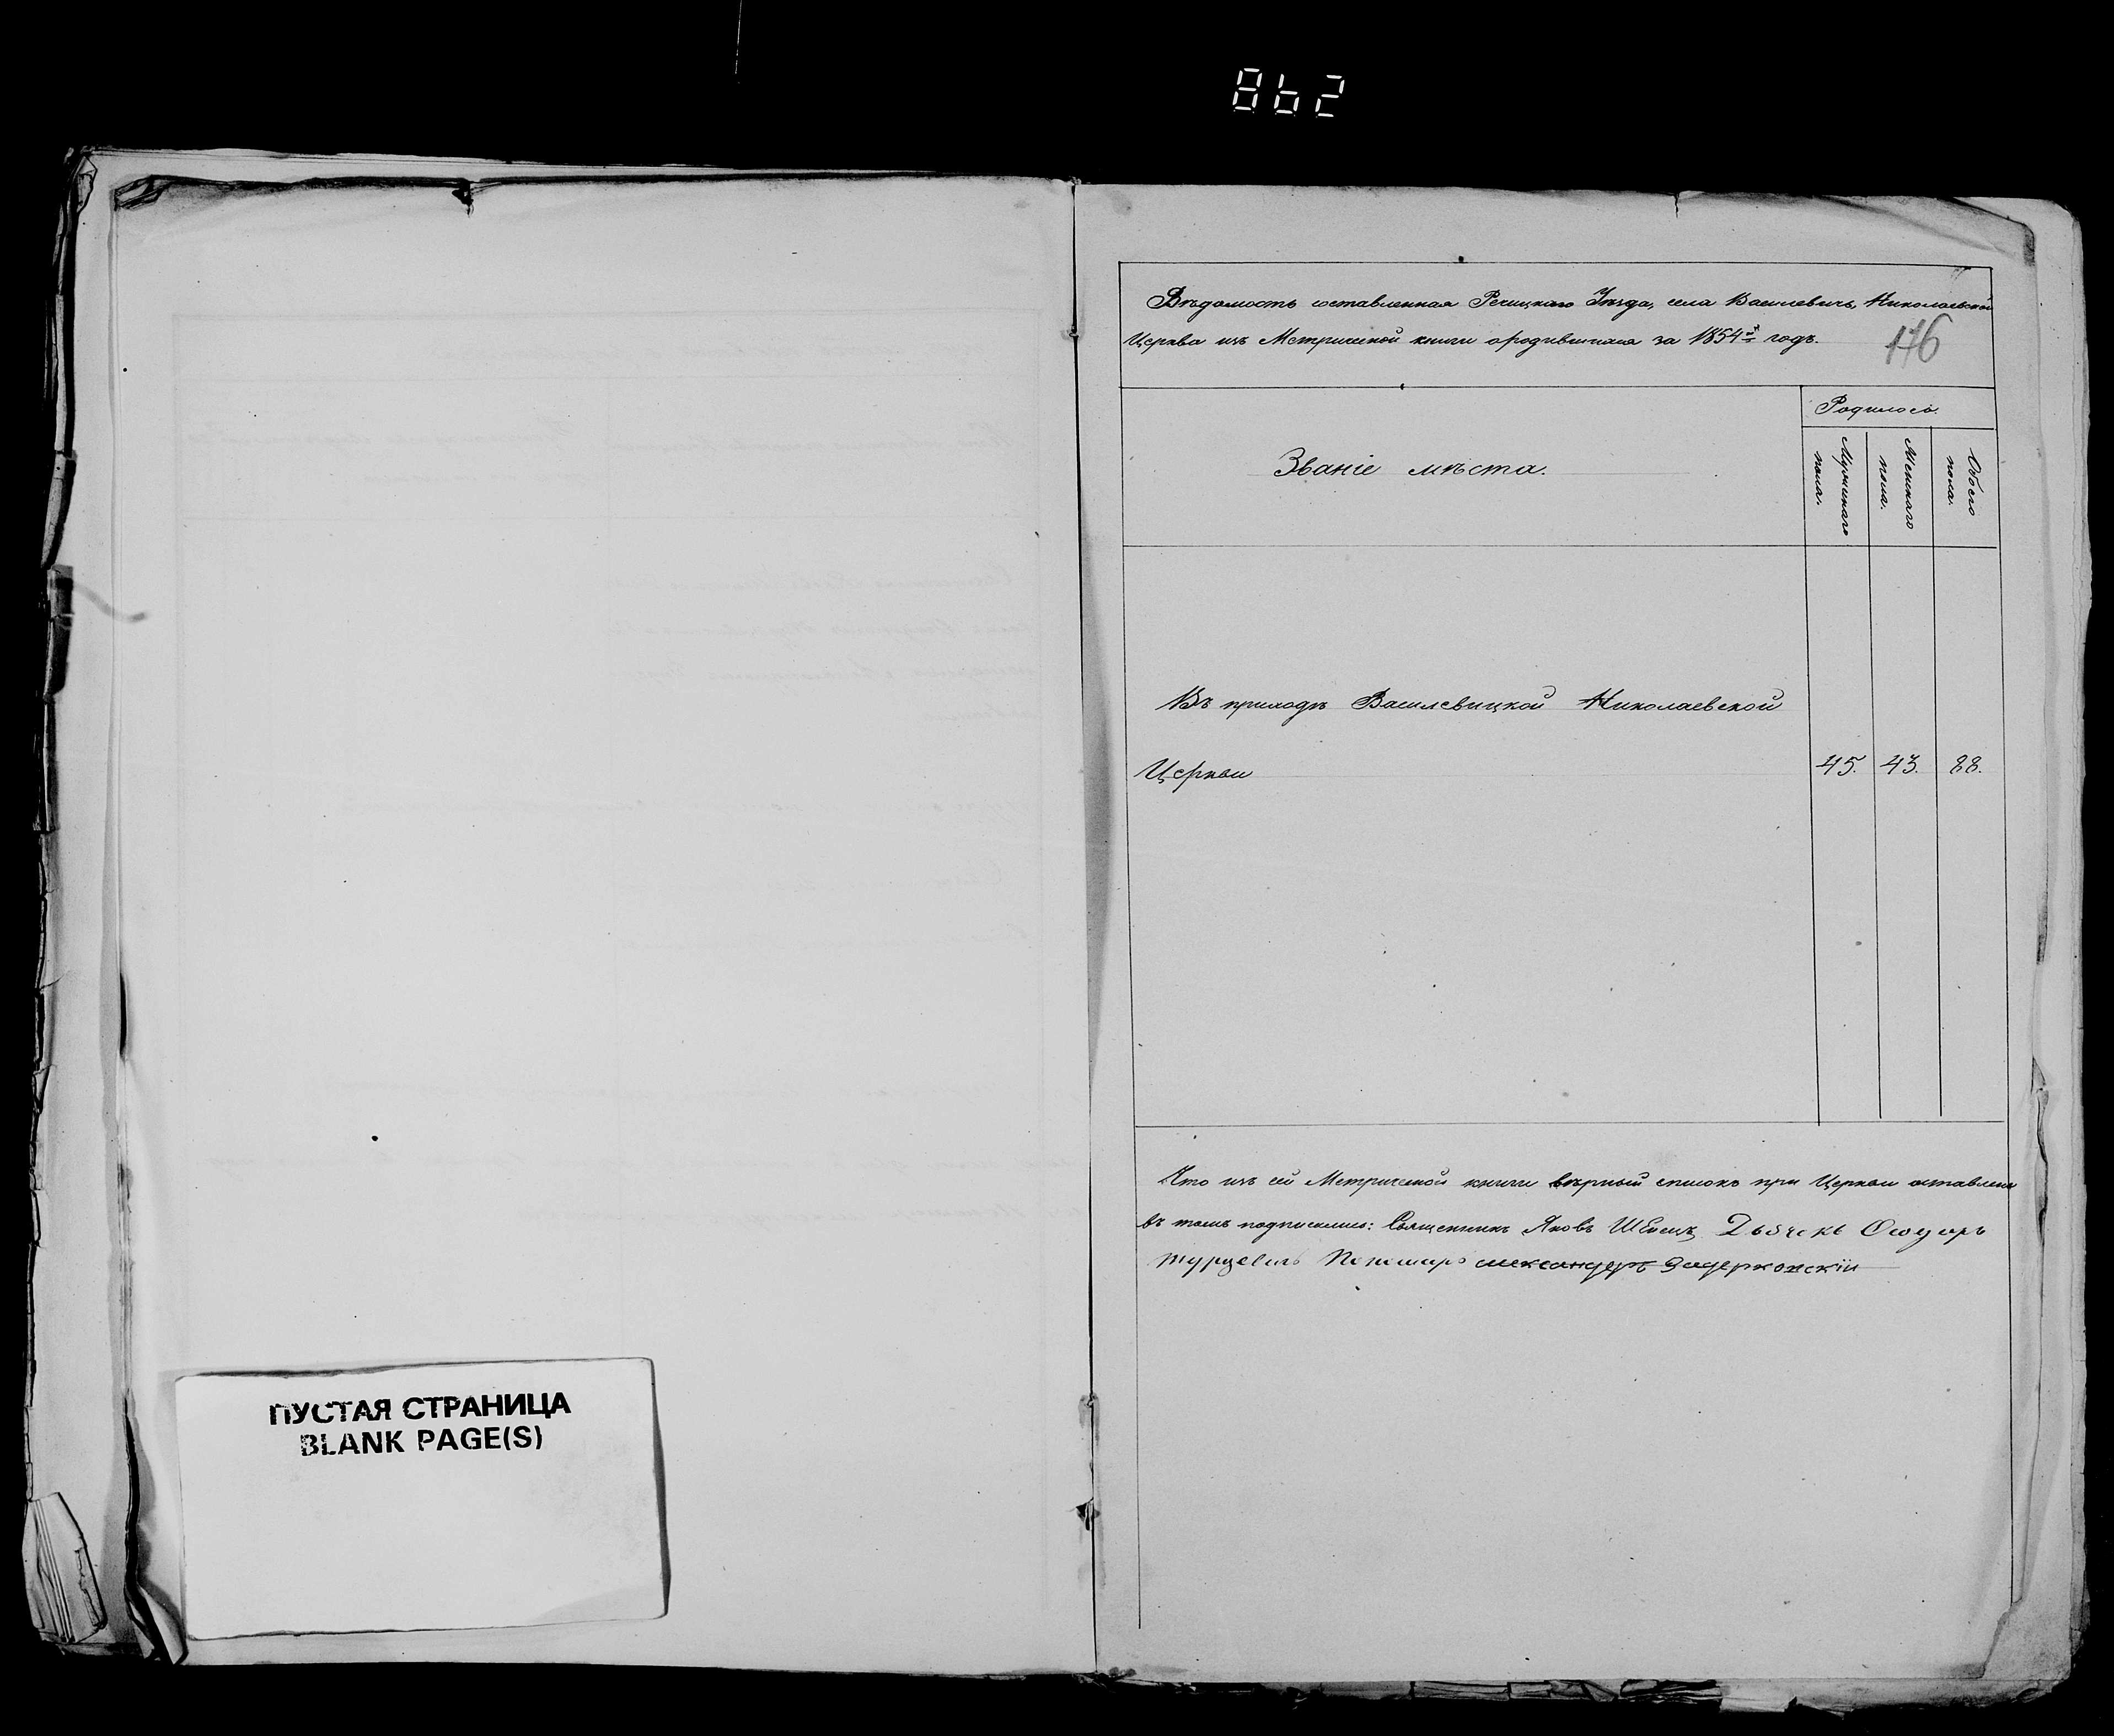 862
Вѣдомость составленная Речицкаго Уѣзда, села Василевичъ, Николаевской
176
Церкви изъ Метрической книги ородившихся за 1854й годъ.
Родилось.
Званіе мѣста.
Мужнскаго пола.
Женскаго пола.
Обоего пола.
Въ приходѣ Василевицкой Николаевской
Церкви 45. 43. 88.
Что изъ сей Метрической книги вѣрный списокъ при Церкви оставленъ
въ томъ подписались: Священникъ Яковъ Дьячекъ Ѳеодоръ
Пономарь александеръ
ПУСТАЯ СТРАНИЦА
BLANK PAGE(S)